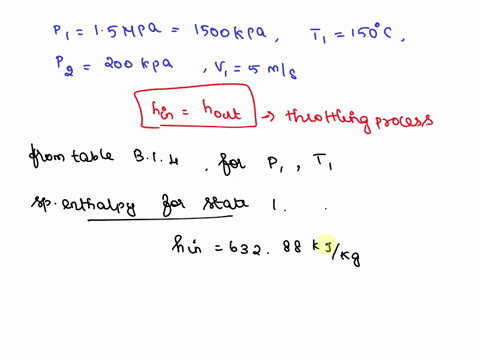 P1 = 1.5 MPa = 1500 kpa, T1 = 150°C,
P2 = 200 kpa, V1 = 5 m/s
hin = hout → throttling process
from table B.1.4, for P1, T1
sp. enthalpy for state 1.
hin = 632.88 kJ/kg